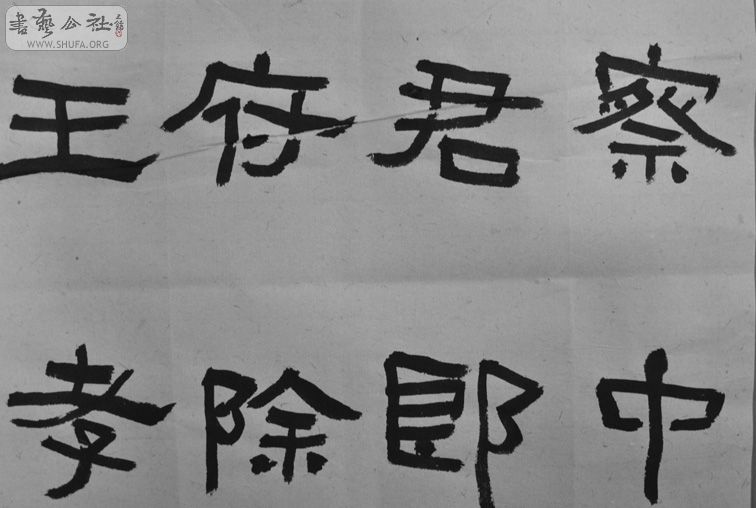 書藝公社
WWW.SHUFA.ORG
王府君察
孝除郎中